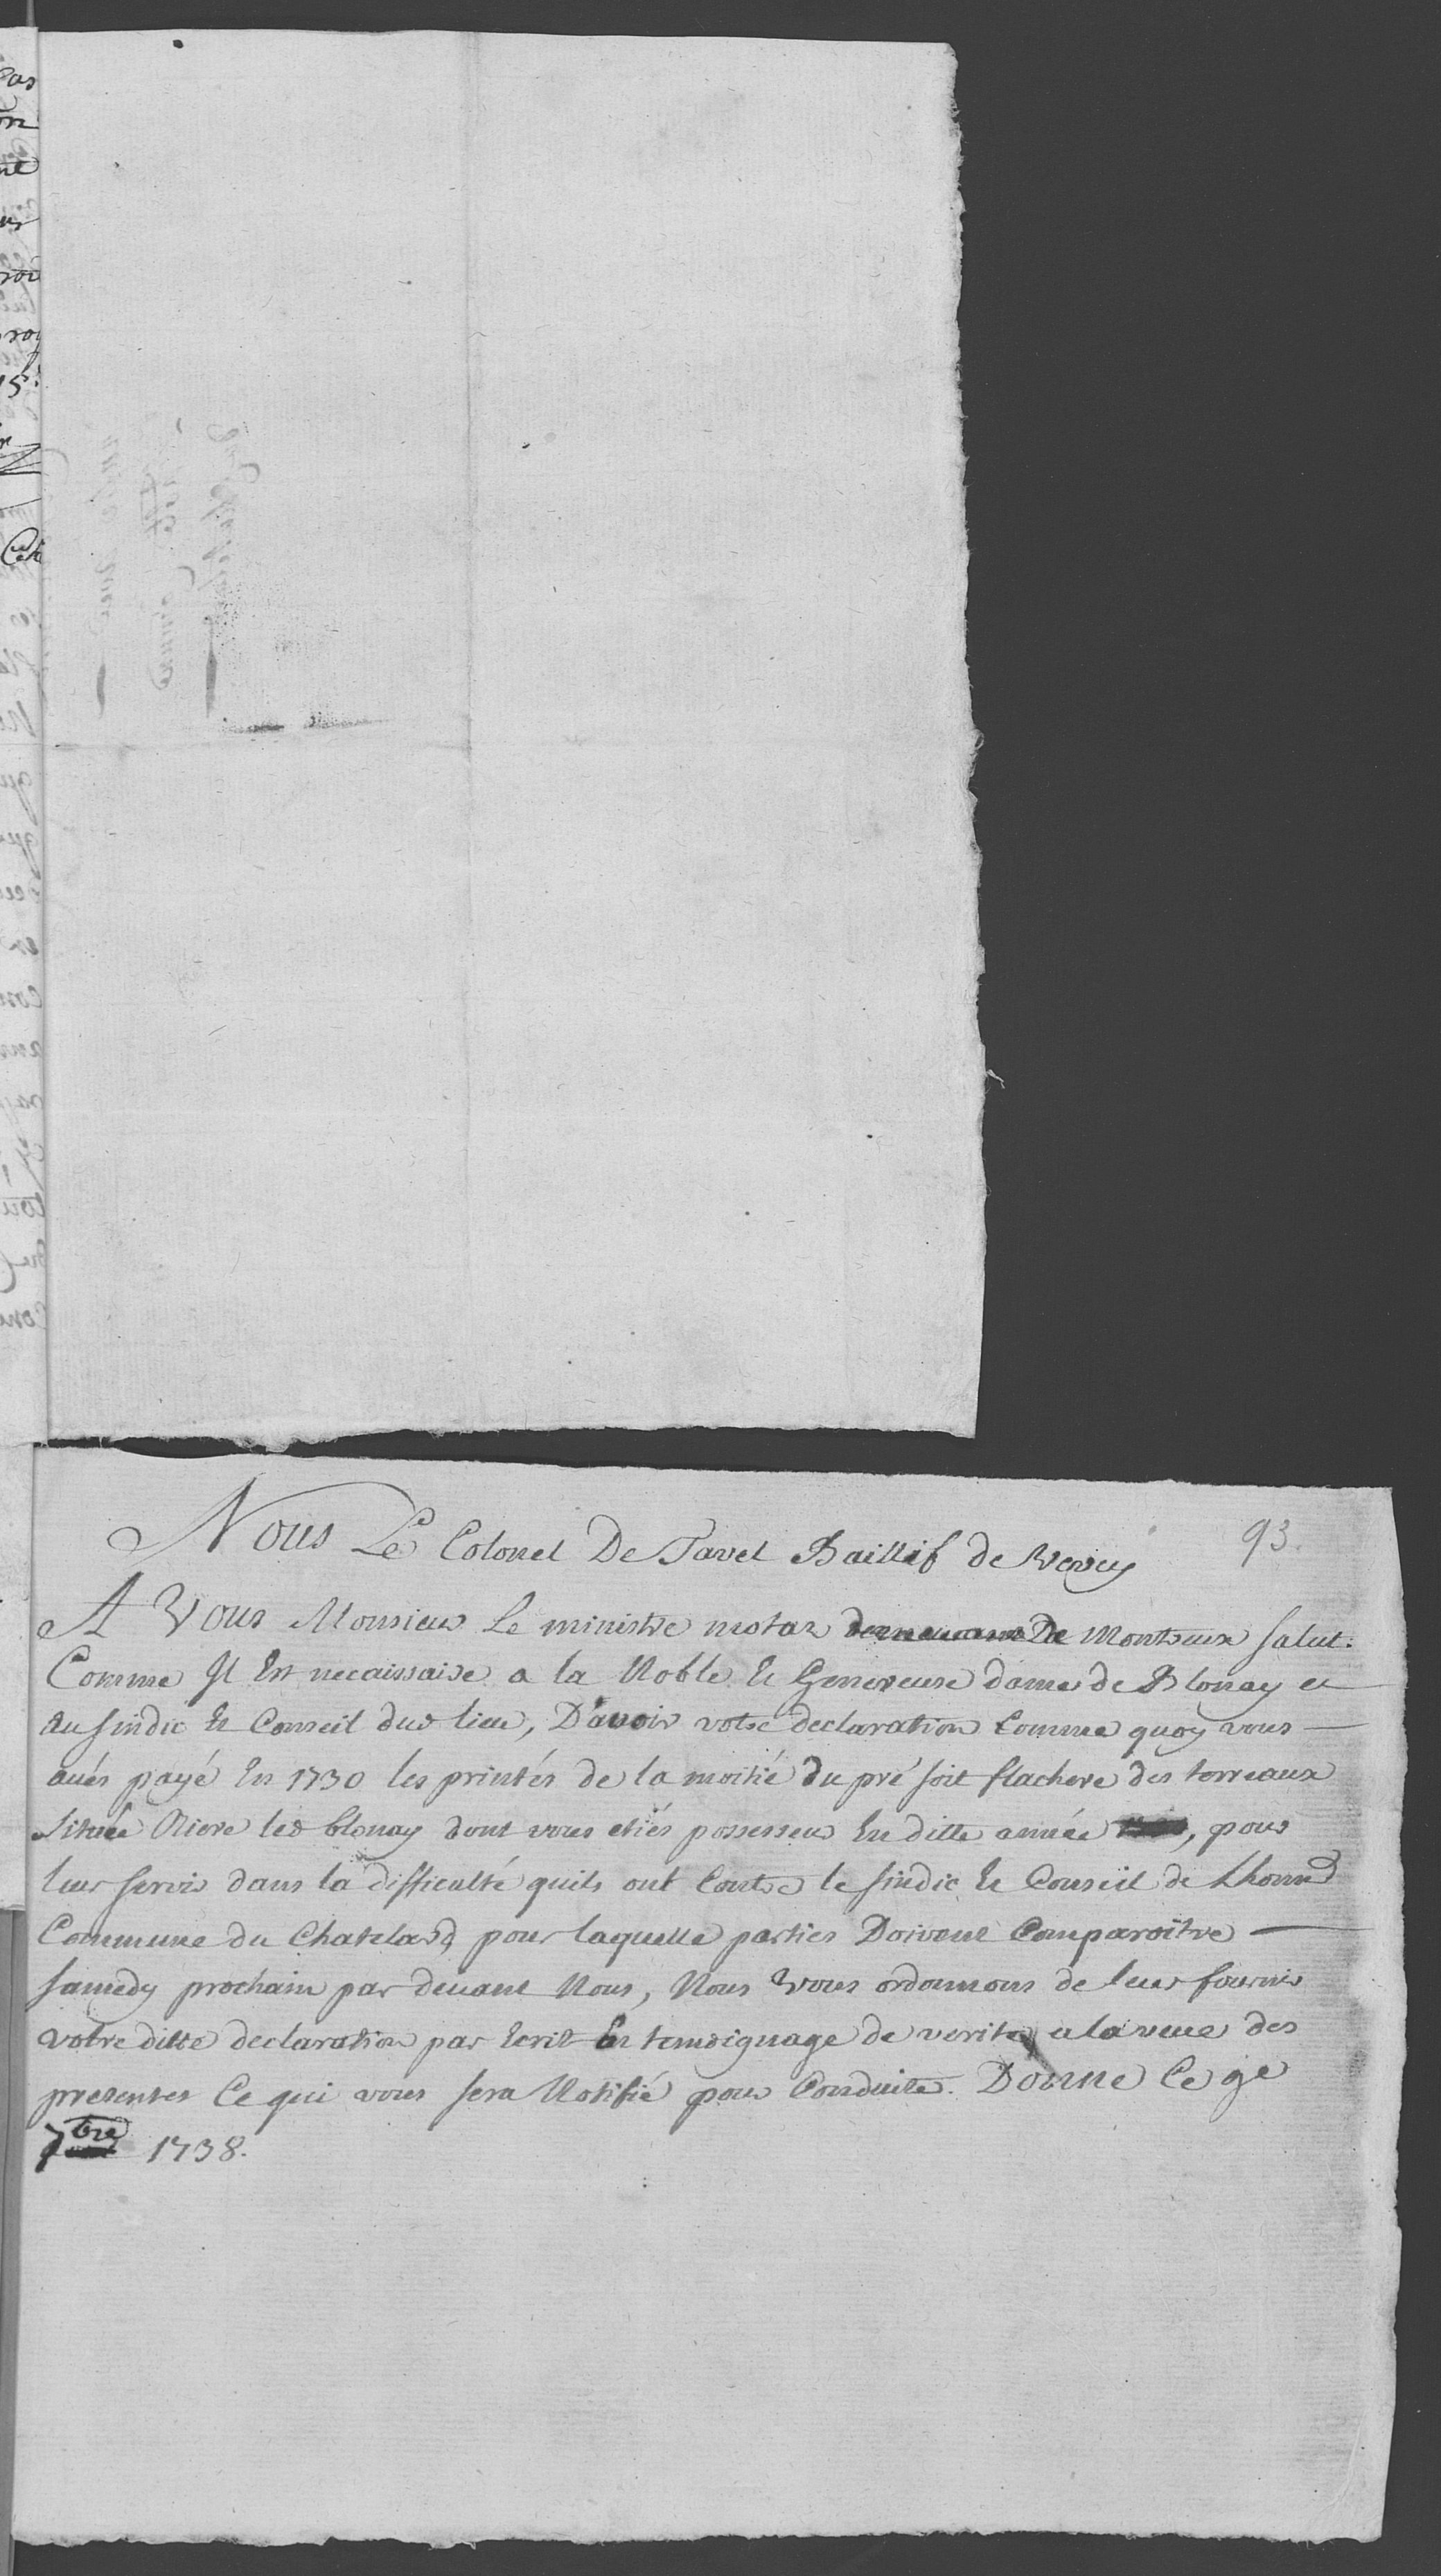 93.
Nous Le Colonel De Tavel Baillif de Vevey
A Vous Monsieur Le ministre De Montreux salut.
Comme Il Est necaissaire a la Noble Et Genereuse dame de Blonay et
au sindic Et Conseil dud lieu, D'avoir votre declaration Comme quoy vous
avés payé En 1730 les printés de la moitié du pré soit flachere des terreaux
située Riere led blonay dont vous etiés possesseur En ditte année, pour
leur servir dans la difficulté quils ont Contre le sindic Et Conseil de Lhonn
Commune du Chatelard, pour laquelle parties Doivent Comparoitre
samedy prochain par devant Nous, Nous Vous ordonnons de leur fournir
votre ditte declaration par Ecrit En temoignage de verite, a la veue des
presentes Ce qui vous sera Notifié pour Conduite. Donne Ce 9e
7bre 1738.